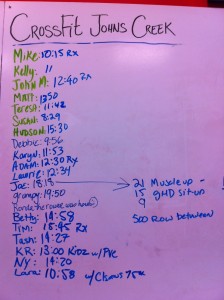 CROSSFIT JOHNS CREEK
Mike: 10:15 Rx
Kelly: 11
John M: 12:40 Rx
Matt: 1250
Teresa: 11:42
Susan: 8:29
Hudson: 15:30
Debbie: 9:56
Karyn: 11:53
ADAM: 12:30 Rx
Laurie: 12:34
Joe: 18:18
grumpy: 19:50
Betty: 14:58
Tim: 15:45 Rx
Tash: 14:27
KR: 13:00 w/ PVC
NY: 14:20
Lara: 10:58 w/
21 Muscle up
15 GHD sit-up
9
500 Row between